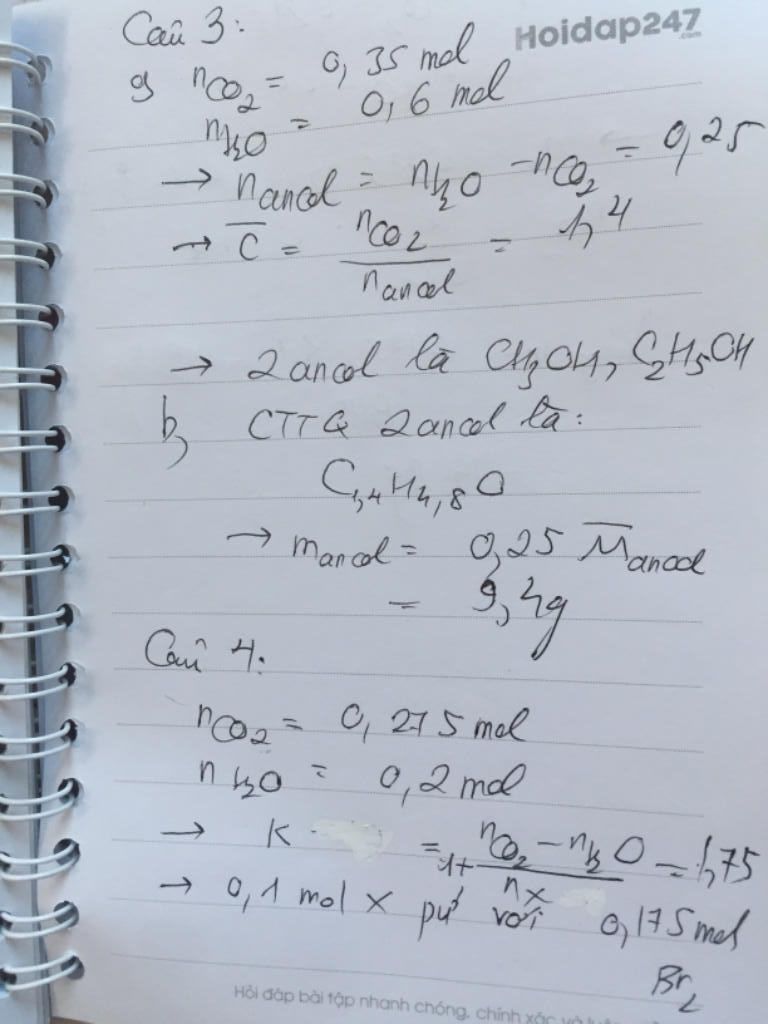 Hoidap247
.com
Câu 3:
a, nCO₂ = 0,35 mol
nH₂O = 0,6 mol
→ nancol = nH₂O - nCO₂ = 0,25
→ C̅ = nCO₂ / nancol = 1,4
→ 2 ancol là CH₃OH, C₂H₅OH
b, CTTQ 2 ancol là:
C₁,₄H₄,₈O
→ mancol = 0,25 M̅ancol
= 9,4g
Câu 4:
nCO₂ = 0,275 mol
nH₂O = 0,2 mol
→ K = 1+ (nCO₂ - nH₂O) / nX = 1,75
→ 0,1 mol X pứ với 0,175 mol
Br₂
Hỏi đáp bài tập nhanh chóng, chính xác và